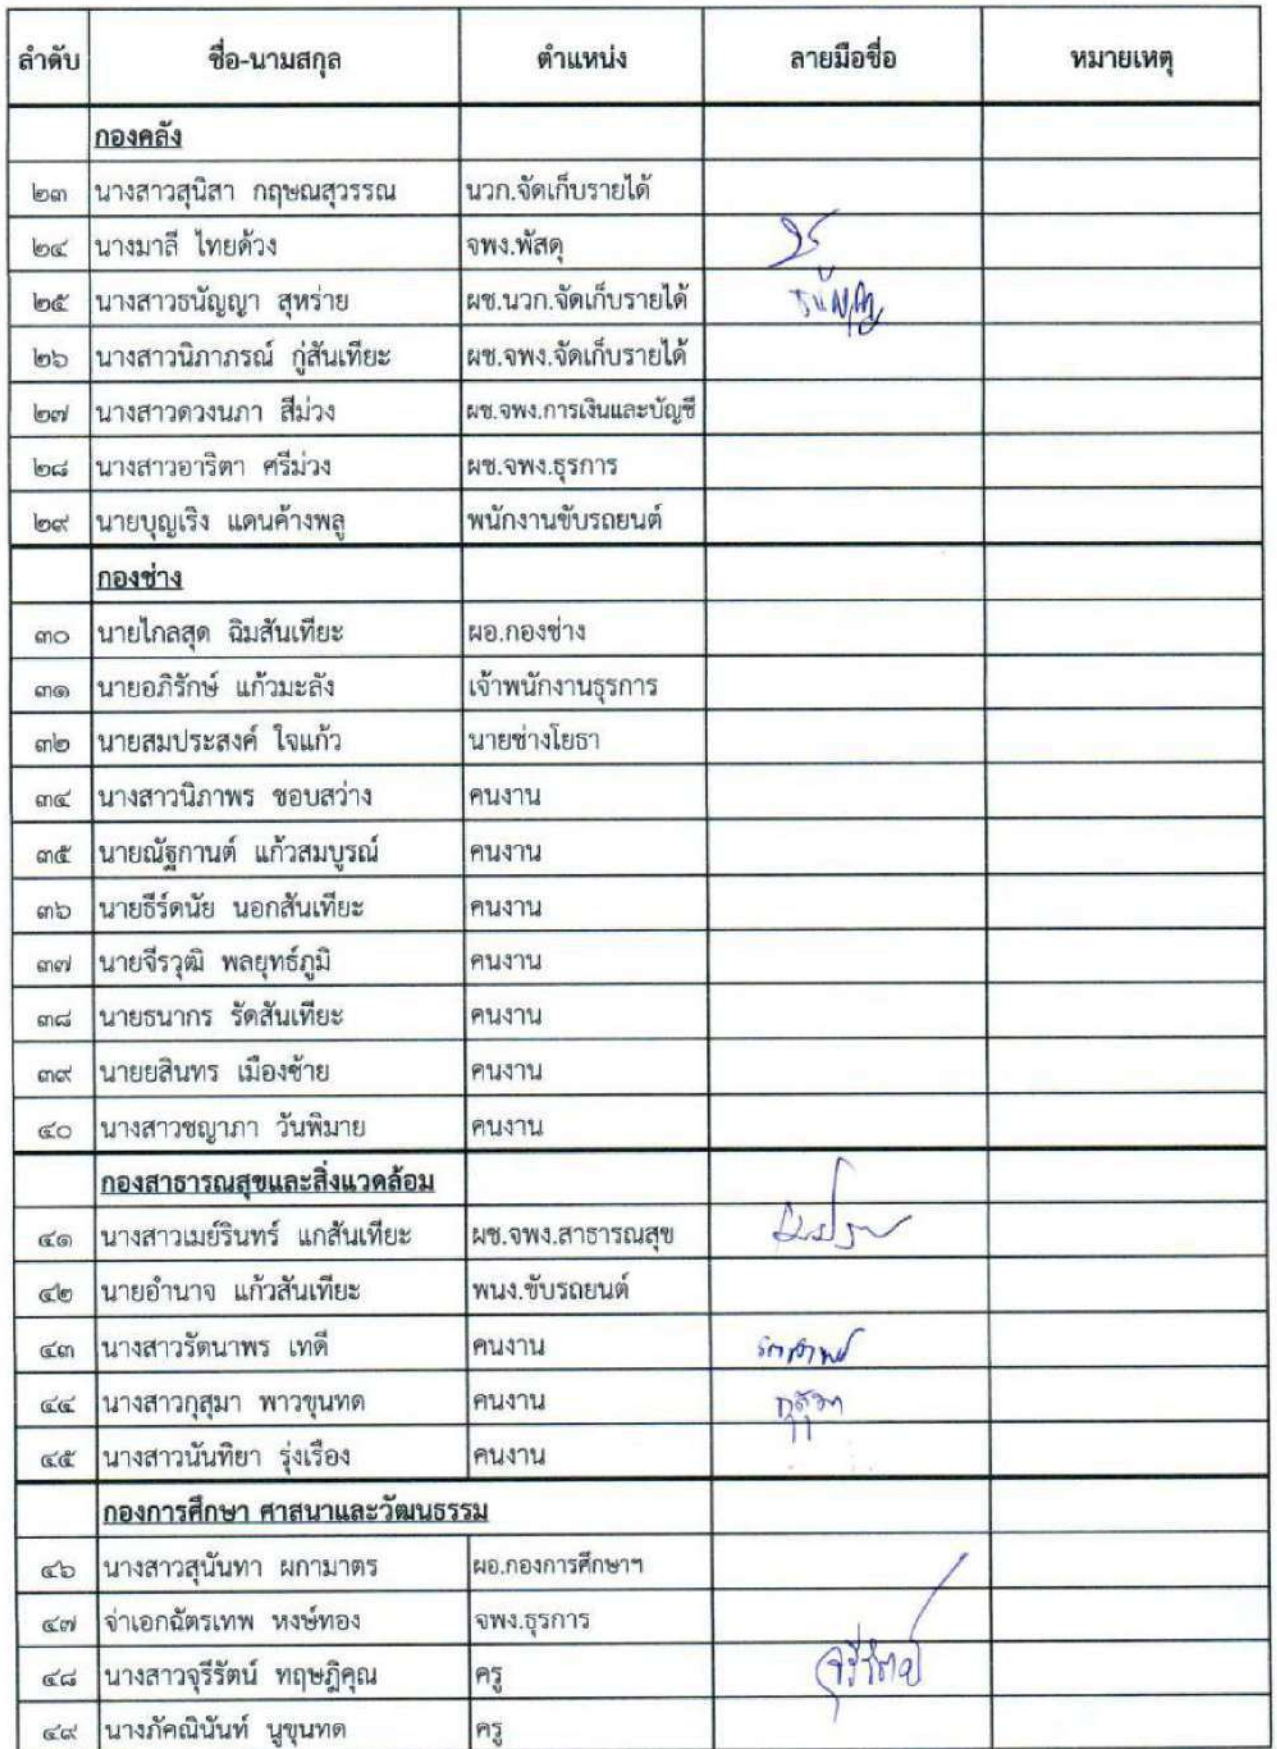 ลำดับ ชื่อ-นามสกุล ตำแหน่ง ลายมือชื่อ หมายเหตุ
กองคลัง
๒๓ นางสาวสุนิสา กฤษณสุวรรณ นวก.จัดเก็บรายได้
๒๔ นางมาลี ไทยด้วง จพง.พัสดุ
๒๕ นางสาวธนัญญา สุหร่าย ผช.นวก.จัดเก็บรายได้ ธนัญญา
๒๖ นางสาวนิภาภรณ์ กู่สันเทียะ ผช.จพง.จัดเก็บรายได้
๒๗ นางสาวดวงนภา สีม่วง ผช.จพง.การเงินและบัญชี
๒๘ นางสาวอาริตา ศรีม่วง ผช.จพง.ธุรการ
๒๙ นายบุญเริง แดนค้างพลู พนักงานขับรถยนต์
กองช่าง
๓๐ นายไกลสุด ฉิมสันเทียะ ผอ.กองช่าง
๓๑ นายอภิรักษ์ แก้วมะลัง เจ้าพนักงานธุรการ
๓๒ นายสมประสงค์ ใจแก้ว นายช่างโยธา
๓๔ นางสาวนิภาพร ชอบสว่าง คนงาน
๓๕ นายณัฐกานต์ แก้วสมบูรณ์ คนงาน
๓๖ นายธีร์ดนัย นอกสันเทียะ คนงาน
๓๗ นายจีรวุฒิ พลยุทธ์ภูมิ คนงาน
๓๘ นายธนากร รัดสันเทียะ คนงาน
๓๙ นายยสินทร เมืองซ้าย คนงาน
๔๐ นางสาวชญาภา วันพิมาย คนงาน
กองสาธารณสุขและสิ่งแวดล้อม
๔๑ นางสาวเมย์รินทร์ แกสันเทียะ ผช.จพง.สาธารณสุข
๔๒ นายอำนาจ แก้วสันเทียะ พนง.ขับรถยนต์
๔๓ นางสาวรัตนาพร เทดี คนงาน รัตนาพร
๔๔ นางสาวกุสุมา พาวขุนทด คนงาน กุสุมา
๔๕ นางสาวนันทิยา รุ่งเรือง คนงาน
กองการศึกษา ศาสนาและวัฒนธรรม
๔๖ นางสาวสุนันทา ผกามาตร ผอ.กองการศึกษาฯ
๔๗ จ่าเอกฉัตรเทพ หงษ์ทอง จพง.ธุรการ
๔๘ นางสาวจุรีรัตน์ ทฤษฎิคุณ ครู จุรีรัตน์
๔๙ นางภัคณินันท์ นูขุนทด ครู